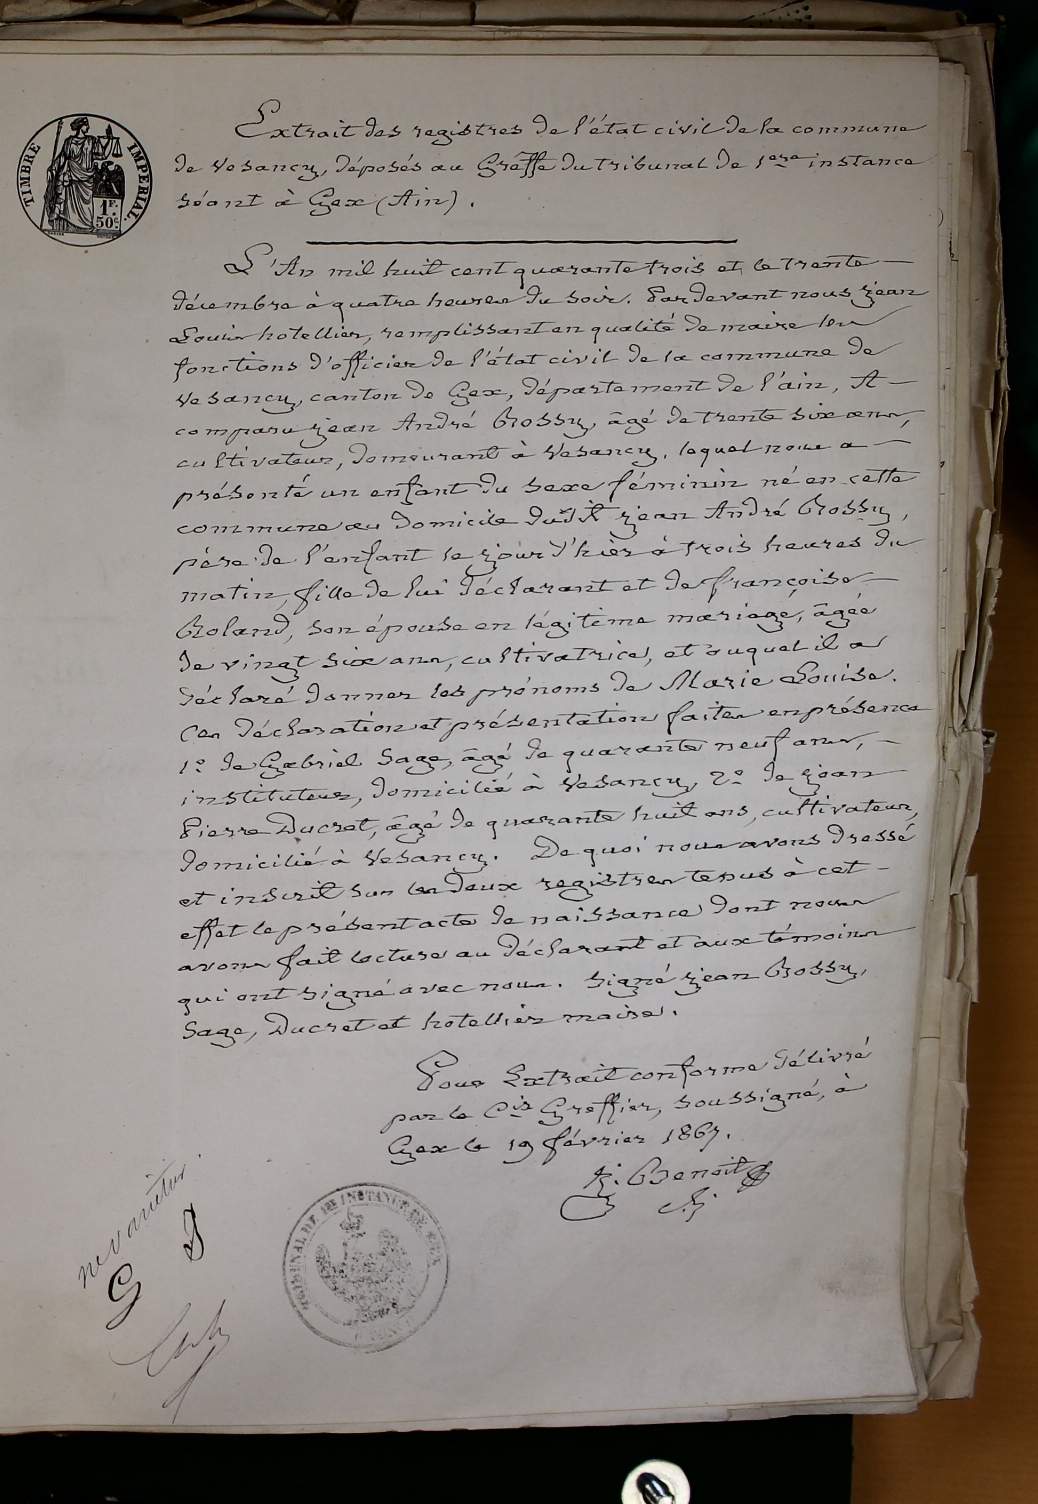 TIMBRE IMPERIAL.
1F.
50c.
Extrait des registres de l'état civil de la commune
de Vesancy, déposés au Greffe du tribunal de 1ere instance
séant à Gex (Ain).
L'An mil huit cent quarante trois et le trente
décembre à quatre heures du soir. Pardevant nous jean
Louis hotellier, remplissant en qualité de maire les
fonctions d'officier de l'état civil de la commune de
Vesancy, canton de Gex, département de l'ain, A
comparu jean André Rossy, âgé de trente six ans,
cultivateur, demeurant à Vesancy, lequel nous a
présenté un enfant du sexe féminin né en cette
commune au domicile dudit jean André Rossy,
père de l'enfant le jour d'hier à trois heures du
matin, fille de lui déclarant et de françoise
Roland, son épouse en légitime mariage, âgée
de vingt six ans, cultivatrice, et auquel il a
déclaré donner les prénoms de Marie Louise.
Ces déclaration et présentation faites en présence
1° de Gabriel Sage, âgé de quarante neuf ans,
instituteur, domicilié à Vesancy, 2° de jean
Pierre Ducret, âgé de quarante huit ans, cultivateur,
domicilié à Vesancy. De quoi nous avons dressé
et inscrit sur les deux registres tenus à cet
effet le présent acte de naissance dont nous
avons fait lecture au déclarant et aux témoins
qui ont signé avec nous. Signé jean Rossy,
Sage, Ducret et hotellier maire.
Pour Extrait conforme délivré
par le Cis Greffier, soussigné, à
Gex le 19 février 1867.
Benoit
ne varietur
TRIBUNAL DE 1RE INSTANCE DE GEX